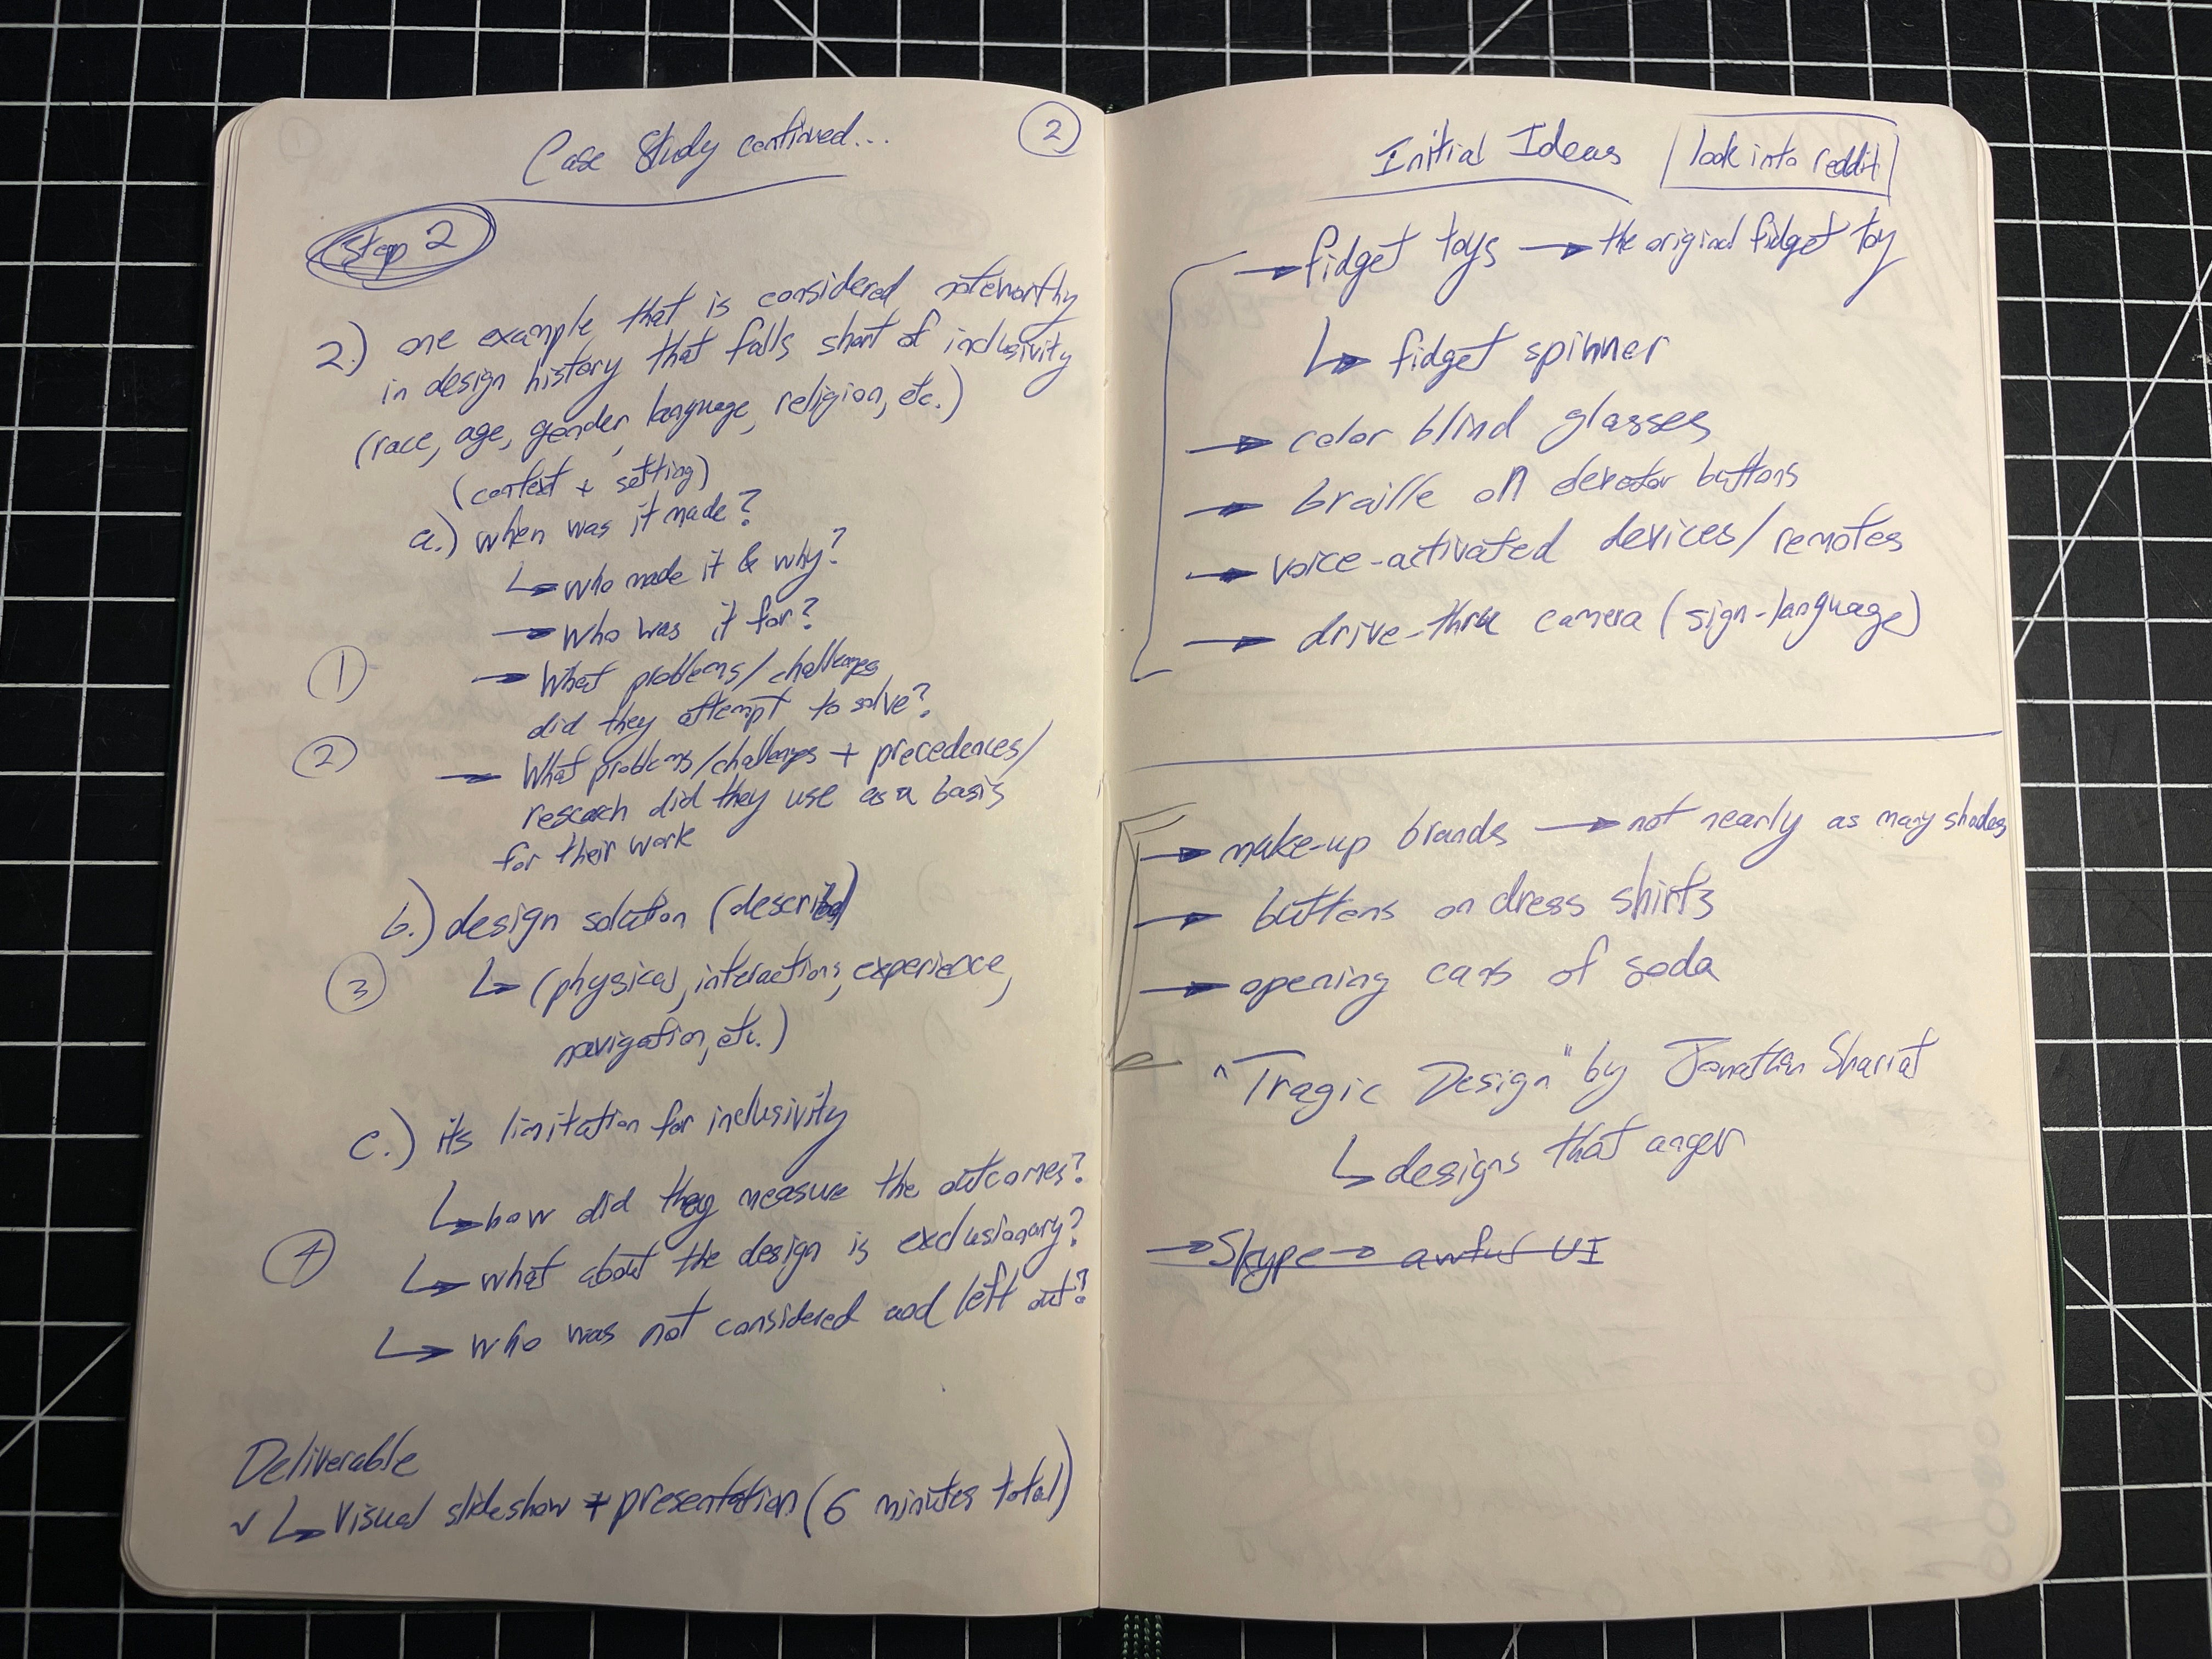 Case Study continued...
2
Step 2
2.) one example that is considered noteworthy
in design history that falls short of inclusivity
(race, age, gender, language, religion, etc.)
(context + setting)
a.) when was it made?
↳ who made it & why?
→ who was it for?
1 → What problems/challenges
did they attempt to solve?
2 → What problems/challenges + precedences/
research did they use as a basis
for their work
b.) design solution (described)
3 ↳ (physical, interactions, experience,
navigation, etc.)
c.) its limitation for inclusivity
↳ how did they measure the outcomes?
4 ↳ what about the design is exclusionary?
↳ who was not considered and left out?
Deliverable
✓ ↳ Visual slideshow + presentation (6 minutes total)
Initial Ideas look into reddit
→ fidget toys → the original fidget toy
↳ fidget spinner
→ color blind glasses
→ braille on elevator buttons
→ voice-activated devices/remotes
→ drive-thru camera (sign-language)
→ make-up brands → not nearly as many shades
→ buttons on dress shirts
→ opening cans of soda
"Tragic Design" by Jonathan Shariat
↳ designs that anger
→ Skype → awful UI